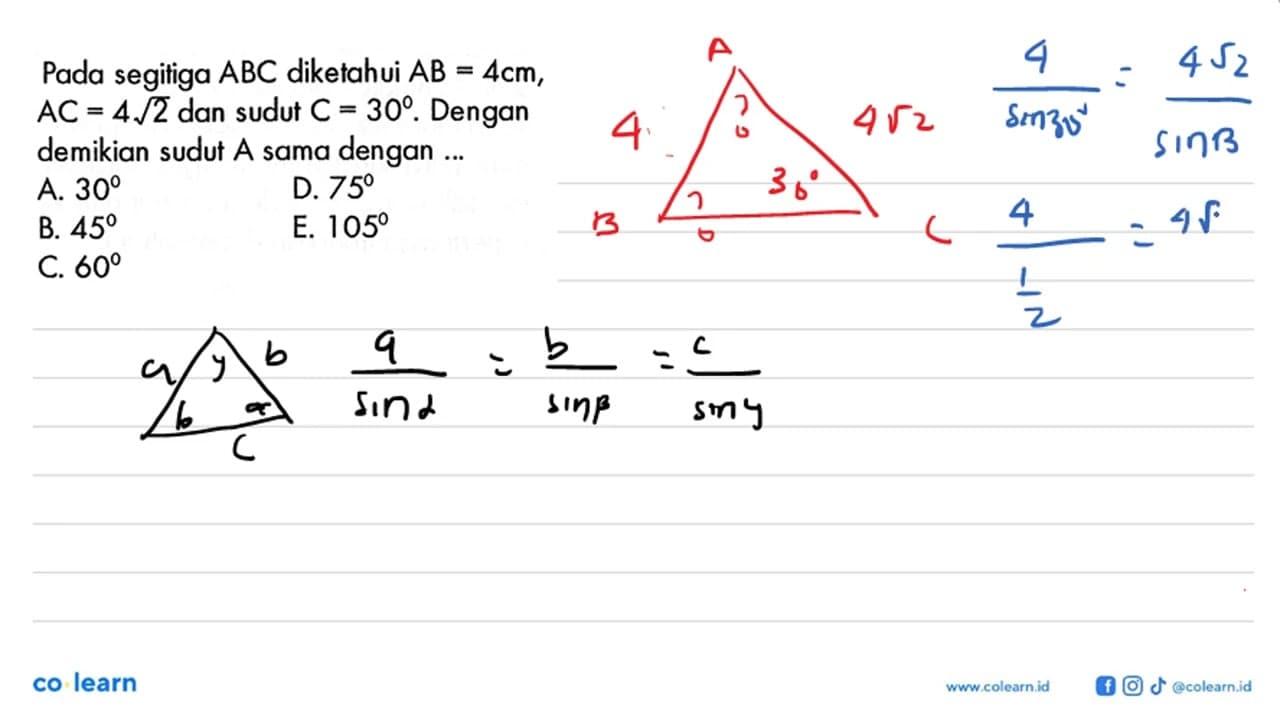 Pada segitiga ABC diketahui AB = 4cm,
AC = 4√2 dan sudut C = 30⁰. Dengan
demikian sudut A sama dengan ...
A. 30⁰ D. 75⁰
B. 45⁰ E. 105⁰
C. 60⁰
A
?
4
4√2
30°
?
B
C
4/sin30° = 4√2/sinB
4/(1/2) = 4√
a y b
b α
c
a/sinα = b/sinβ = c/siny
co learn
www.colearn.id
@colearn.id